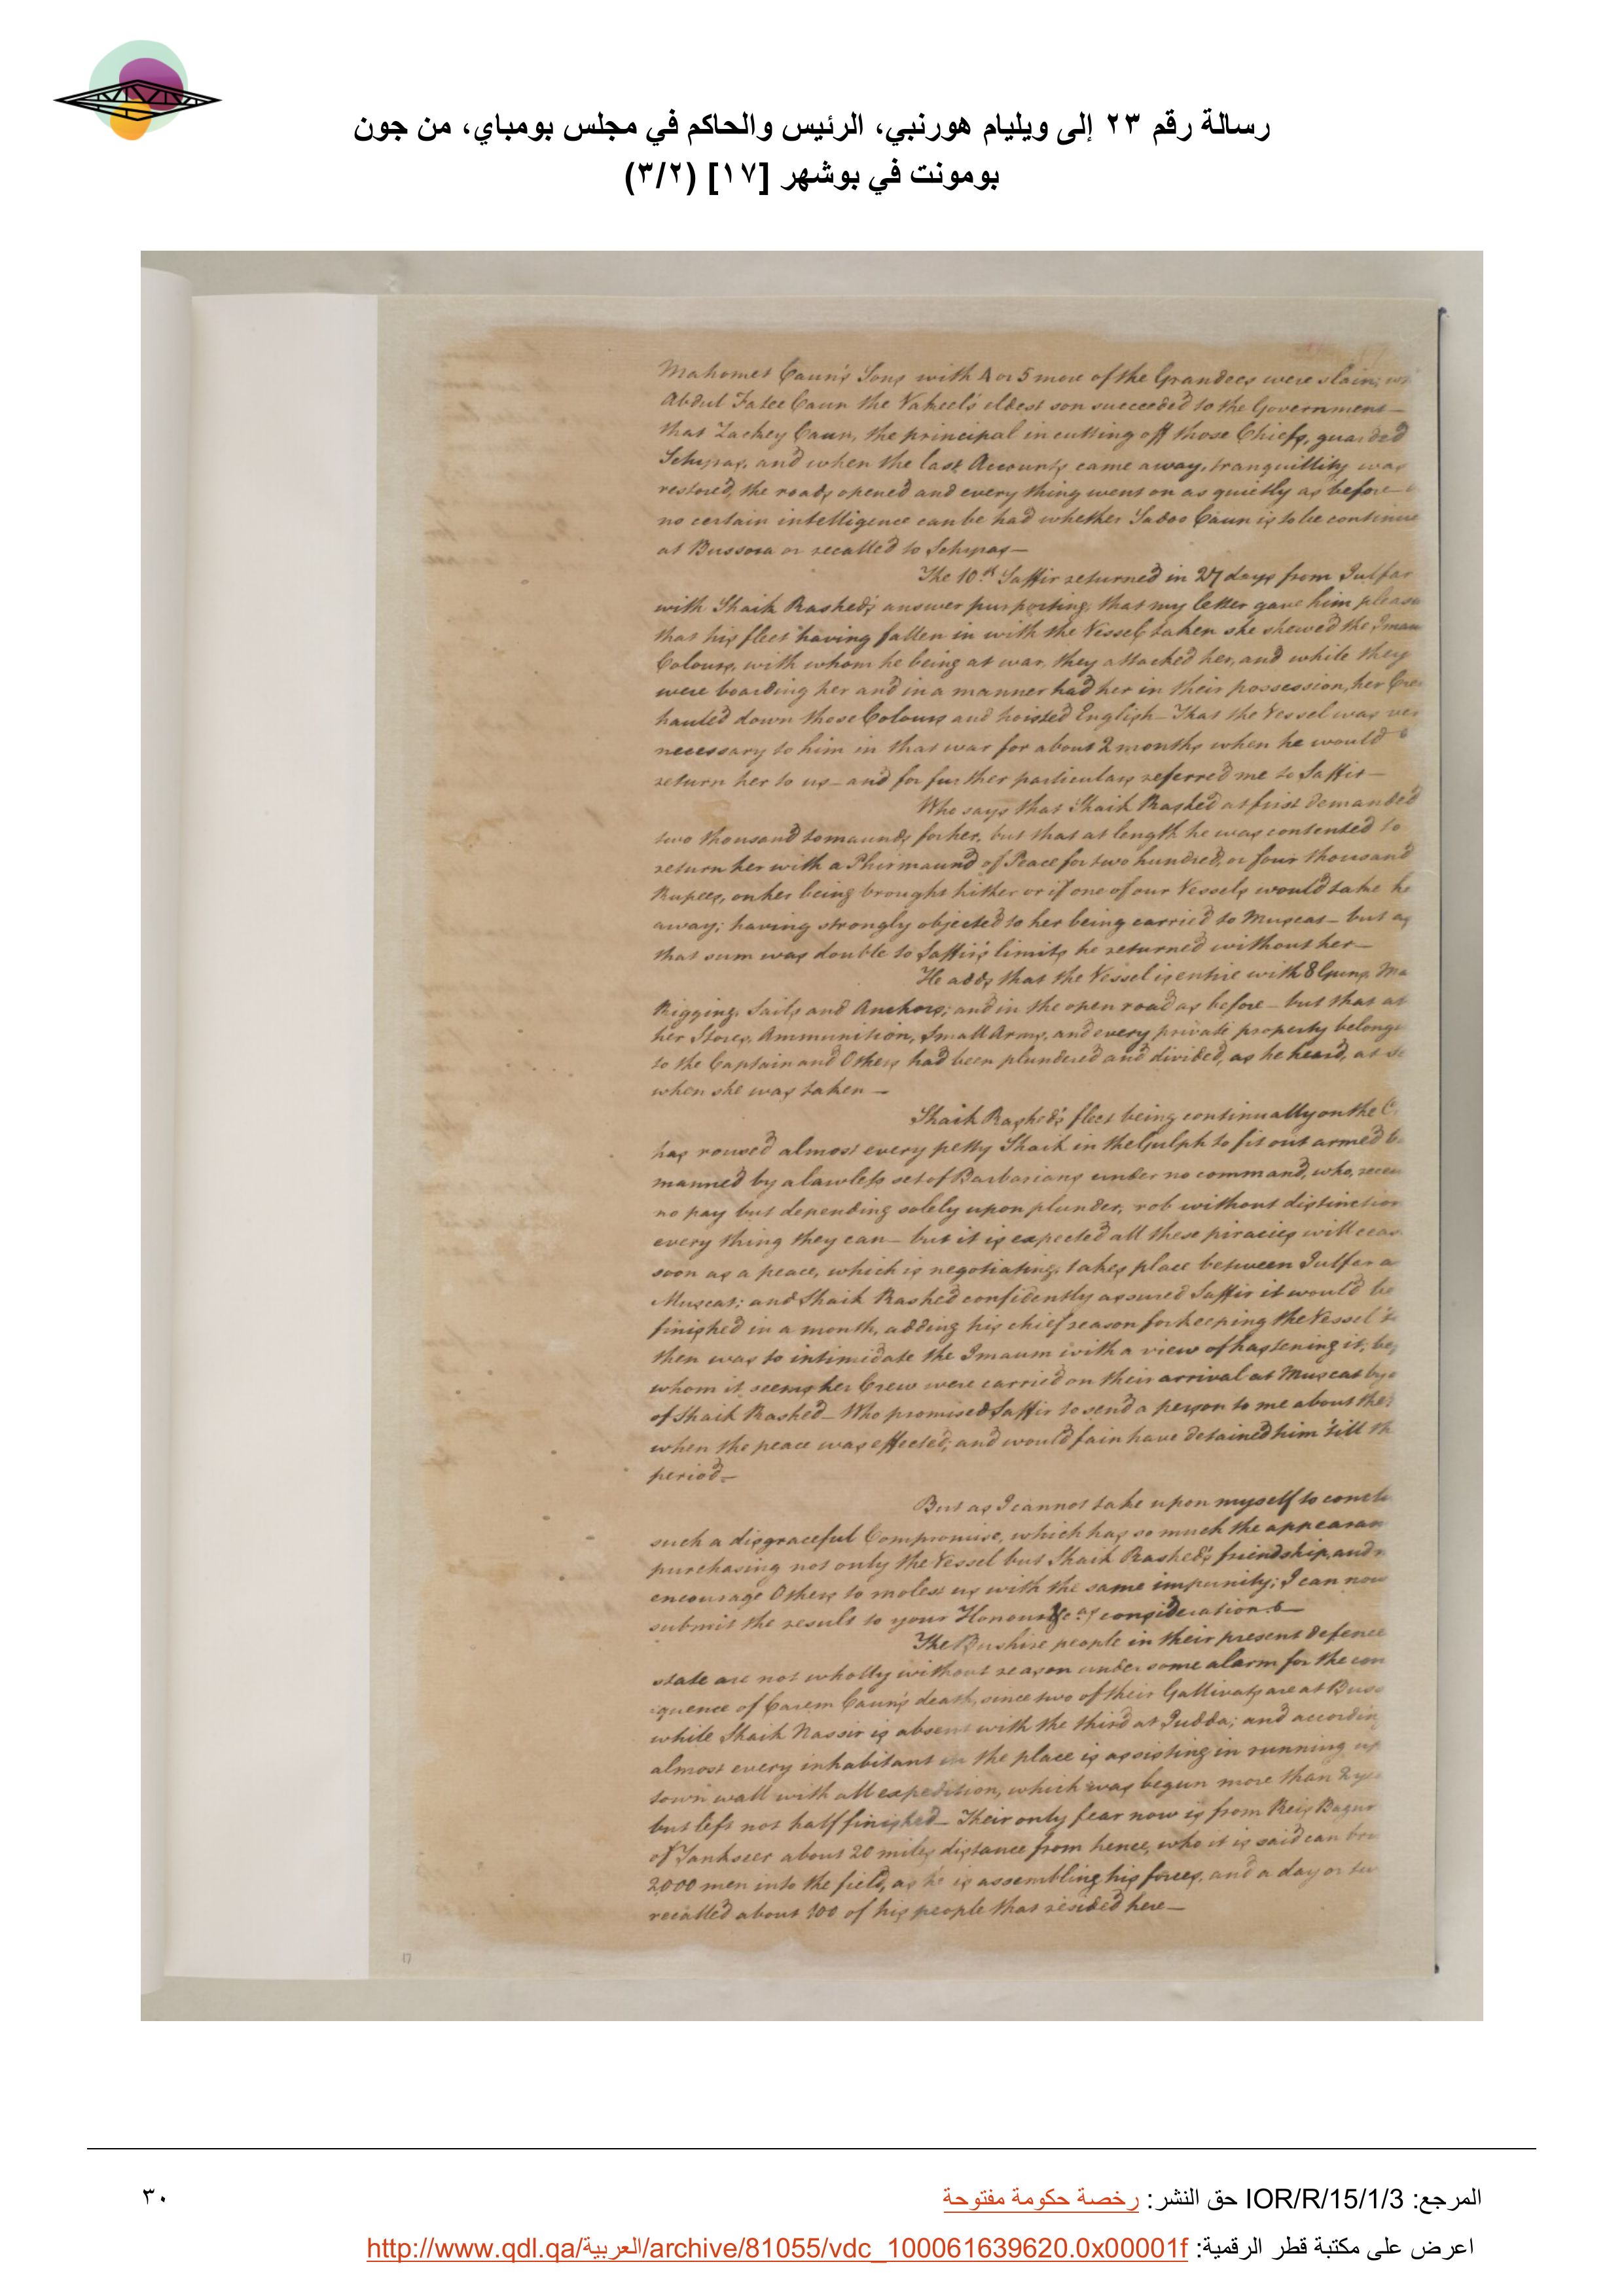 رسالة رقم ٢٣ إلى ويليام هورنبي، الرئيس والحاكم في مجلس بومباي، من جون
بومونت في بوشهر [١٧] (٣/٢)
Mahomet Caun's Sons with 4 or 5 more of the Grandees were slain;
Abdul Fatee Caun the Vakeel's eldest son succeeded to the Government—
that Zackey Caun, the principal in cutting off those Chiefs, guarded
Schyras, and when the last Accounts came away, tranquillity was
restored, the roads opened and every thing went on as quietly as before—
no certain intelligence can be had whether Sadoo Caun is to be continue
at Bussora or recalled to Schyras—
The 10th Saffir returned in 27 days from Julfar
with Shaik Rashed's answer purporting, that my letter gave him pleas
that his fleet having fallen in with the Vessel taken she shewed the Imau
Colours, with whom he being at war, they attacked her, and while they
were boarding her and in a manner had her in their possession, her Cre
hauled down those Colours and hoisted English— That the Vessel was ver
necessary to him in that war for about 2 months when he would
return her to us— and for further particulars referred me to Saffir—
Who says that Shaik Rashed at first demanded
two thousand tomaunds for her, but that at length he was contented to
return her with a Phirmaund of Peace for two hundred, or four thousand
Rupees, on her being brought hither or if one of our Vessels would take he
away; having strongly objected to her being carried to Muscat— but as
that sum was double to Saffir's limits he returned without her—
He adds that the Vessel is entire with 8 Guns, Ma
Rigging, Sails and Anchors; and in the open road as before— but that at
her Stores, Ammunition, Small Arms, and every private property belong
to the Captain and Others had been plundered and divided, as he heard, at se
when she was taken—
Shaik Rashed's fleet being continually on the C
has roused almost every petty Shaik in the Gulph to fit out armed b
manned by a lawless set of Barbarians under no command, who, recei
no pay but depending solely upon plunder, rob without distinction
every thing they can— but it is expected all these piracies will ceas
soon as a peace, which is negotiating, takes place between Julfar a
Muscat; and Shaik Rashed confidently assured Saffir it would be
finished in a month, adding his chief reason for keeping the Vessel t
then was to intimidate the Imaum with a view of hastening it; be
whom it seems her Crew were carried on their arrival at Muscat by
of Shaik Rashed— Who promised Saffir to send a person to me about the
when the peace was effected, and would fain have detained him 'till th
period—
But as I cannot take upon myself to conclu
such a disgraceful Compromise, which has so much the appearan
purchasing not only the Vessel but Shaik Rashed's friendship, and
encourage Others to molest us with the same impunity; I can now
submit the result to your Honour &ca.s consideration—
The Bushire people in their present defence
state are not wholly without reason under some alarm for the con
quence of Carem Caun's death, since two of their Gallivats are at Buss
while Shaik Nassir is absent with the third at Judda; and accordin
almost every inhabitant in the place is assisting in running up
town wall with all expedition, which was begun more than 2 ye
but left not half finished— Their only fear now is from Reis Bagur
of Tankseer about 20 miles distance from hence, who it is said can bri
2,000 men into the field, as he is assembling his forces, and a day or tw
recalled about 100 of his people that resided here—
17
المرجع: IOR/R/15/1/3 حق النشر: رخصة حكومة مفتوحة
٣٠
اعرض على مكتبة قطر الرقمية: http://www.qdl.qa/العربية/archive/81055/vdc_100061639620.0x00001f